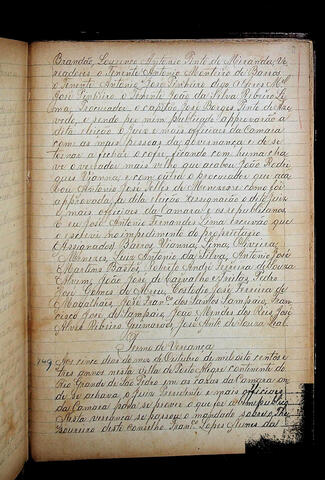 Brandão, Lourenço Antonio Pinto de Miranda, Ve
readores o Tenente Antonio Monteiro de Barros
o Tenente Antonio José Pinheiro digo Alferes M.el
José Pinheiro, o Tenente João da Silva Ribeiro Li
ma, Procurador o capitão José Borges Pinto de Aze
vedo, e sendo por mim publicada approvarão a
dita eleição o Juiz e mais officiaes da Camara
com as mais pessoas da governança e de se
tornar a fechar o cofre, ficando com huma cha
ve o vereador mais velho que acabou João Rodri
gues Vianna, e com outra o procurador que aca
bou Antonio José Telles de Menezes e como foi
approvada, fis dita eleição, assignarão o dito juiz
e mais officiaes da Camara e os republicanos
E eu José Antonio Fernandes Lima escrivão que
o escrevi no impedimento do proprietario
Assignados Barros, Vianna, Lima, Oliveira,
Menezes, Luiz Antonio da Silva, Antonio José
Martins Bastos, André Ferreira de Souza
João José de Carvalho e Freitas, Pedro
José Gomes de Abreu, Custodio José Teixeira de
Magalhães, José Fran.co dos Santos Sampaio, Fran
cisco José de Sampaio, João Mendes dos Reis, José
Alves Ribeiro Guimarães, José Ant.o de Souza Leal.
Termo de Veriança
Aos cinco dias do mez de Outubro de mil oito centos e
tres annos nesta Villa de Porto Alegre continente do
Rio Grande de São Pedro em as cazas da Camara on
de se achava o Juiz Presidente e mais officiaes
da Camara para se prover o que for a bem publico
Nesta veriança se passou o mandado sobre o The
zoureiro deste Conselho Fran.co Lopes